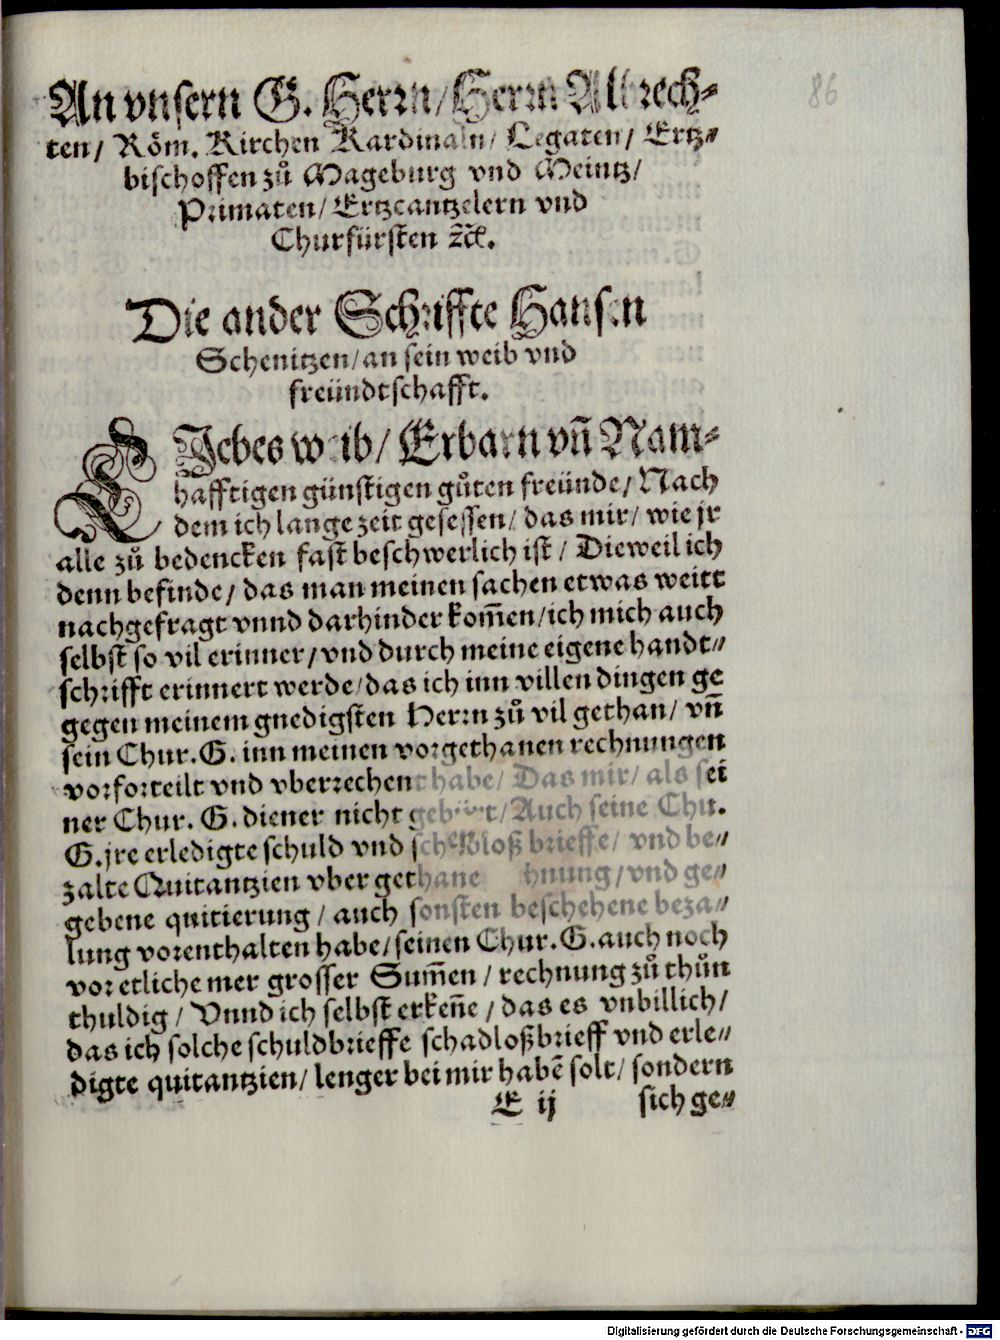 86
An vnsern G. Herrn/ Herrn Albrech⸗
ten/ Röm. Kirchen Kardinaln/ Legaten/ Ertz⸗
bischoffen zů Mageburg vnd Meintz/
Primaten/ Ertzcantzelern vnd
Churfürsten ꝛc̃.
Die ander Schriffte Hansen
Schenitzen/ an sein weib vnd
freündtschafft.
LIebes weib/ Erbarn vñ Nam⸗
hafftigen günstigen gůten freünde/ Nach
dem ich lange zeit gesessen/ das mir/ wie jr
alle zů bedencken fast beschwerlich ist/ Dieweil ich
denn befinde/ das man meinen sachen etwas weitt
nachgefragt vnnd darhinder kom̃en/ ich mich auch
selbst so vil erinner/ vnd durch meine eigene handt⸗
schrifft erinnert werde/ das ich inn villen dingen ge
gegen meinem gnedigsten Herrn zů vil gethan/ vñ
sein Chur. G. inn meinen vorgethanen rechnungen
vorforteilt vnd vberrechent habe/ Das mir/ als sei
ner Chur. G. diener nicht gebürt/ Auch seine Chu.
G. jre erledigte schuld vnd brieffe/ vnd be⸗
zalte Quitantzien vber gethane vnd ge⸗
gebene quitierung/ auch sonsten beschehene beza⸗
lung vorenthalten habe/ seinen Chur. G. auch noch
vor etliche mer grosser Sum̃en/ rechnung zů thůn
thuldig/ Vnnd ich selbst erkeñe/ das es vnbillich/
das ich solche schuldbrieffe schadloßbrieff vnd erle⸗
digte quitantzien/ lenger bei mir habẽ solt/ sondern
E ij sich ge⸗
Digitalisierung gefördert durch die Deutsche Forschungsgemeinschaft - DFG